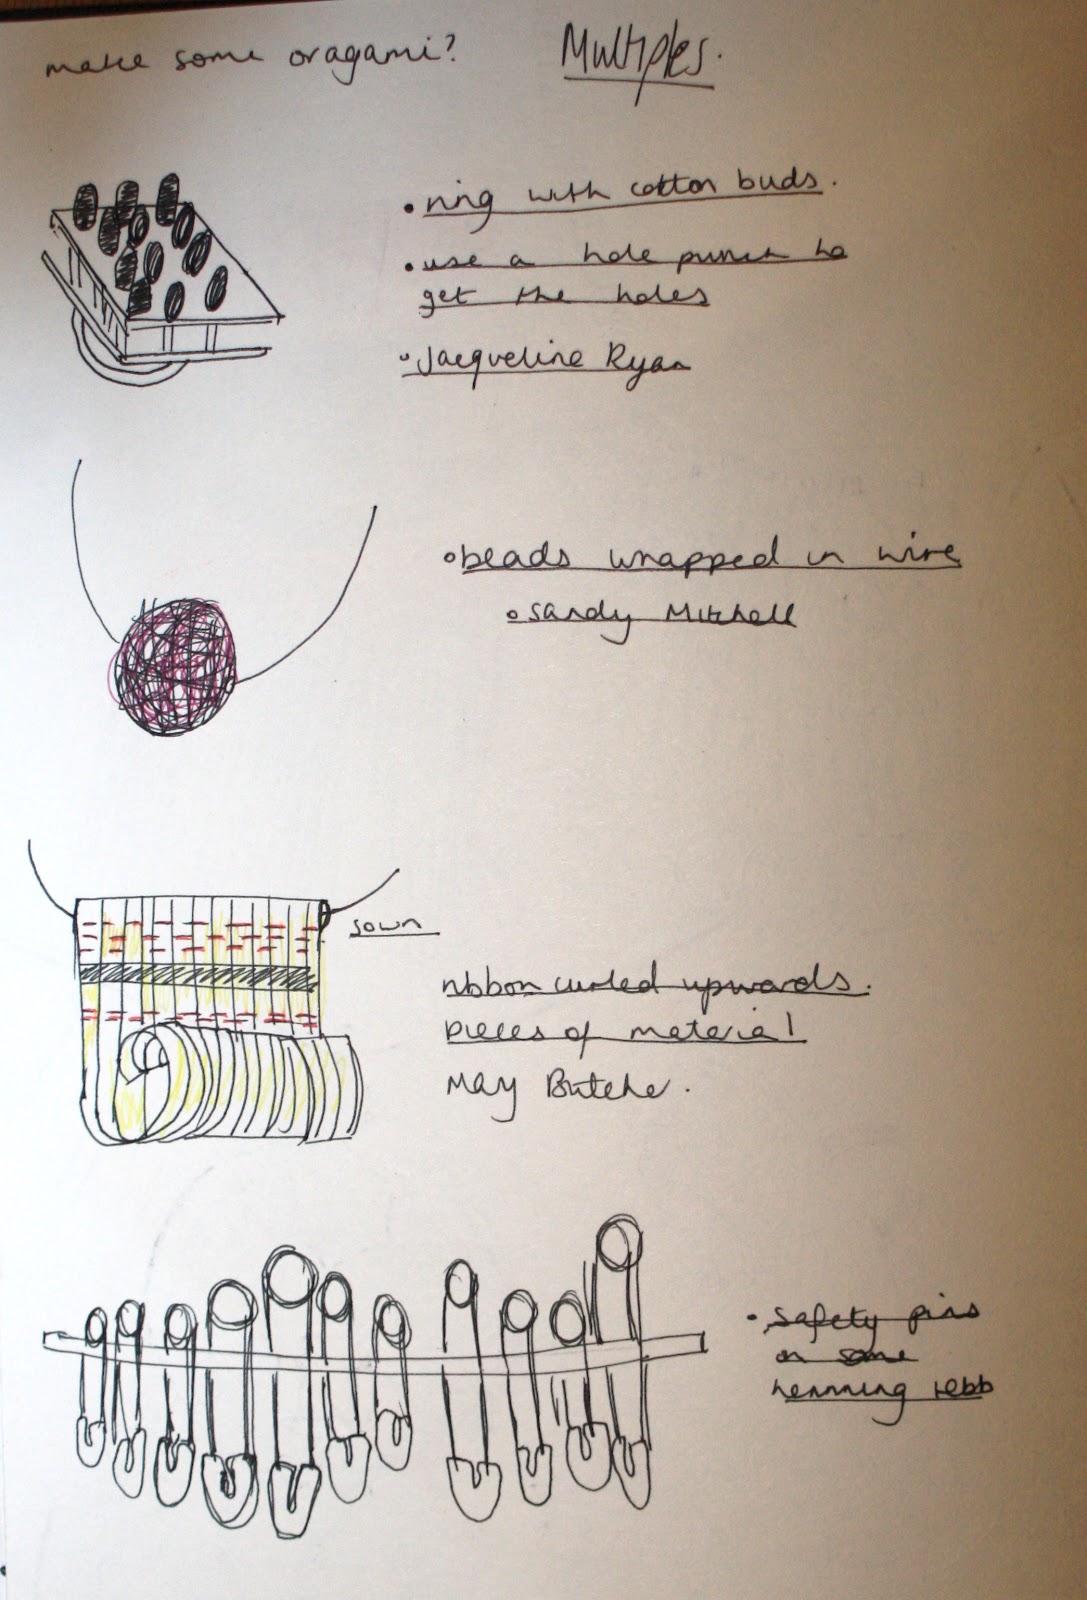 make some oragami?
Multiples.
• ring with cotton buds.
• use a hole punch to
get the holes
• Jacqueline Ryan
• beads wrapped in wire
• Sandy Mitchell
sown
ribbon curled upwards.
pieces of material
May Butche.
• Safety pins
on some
hemming webb